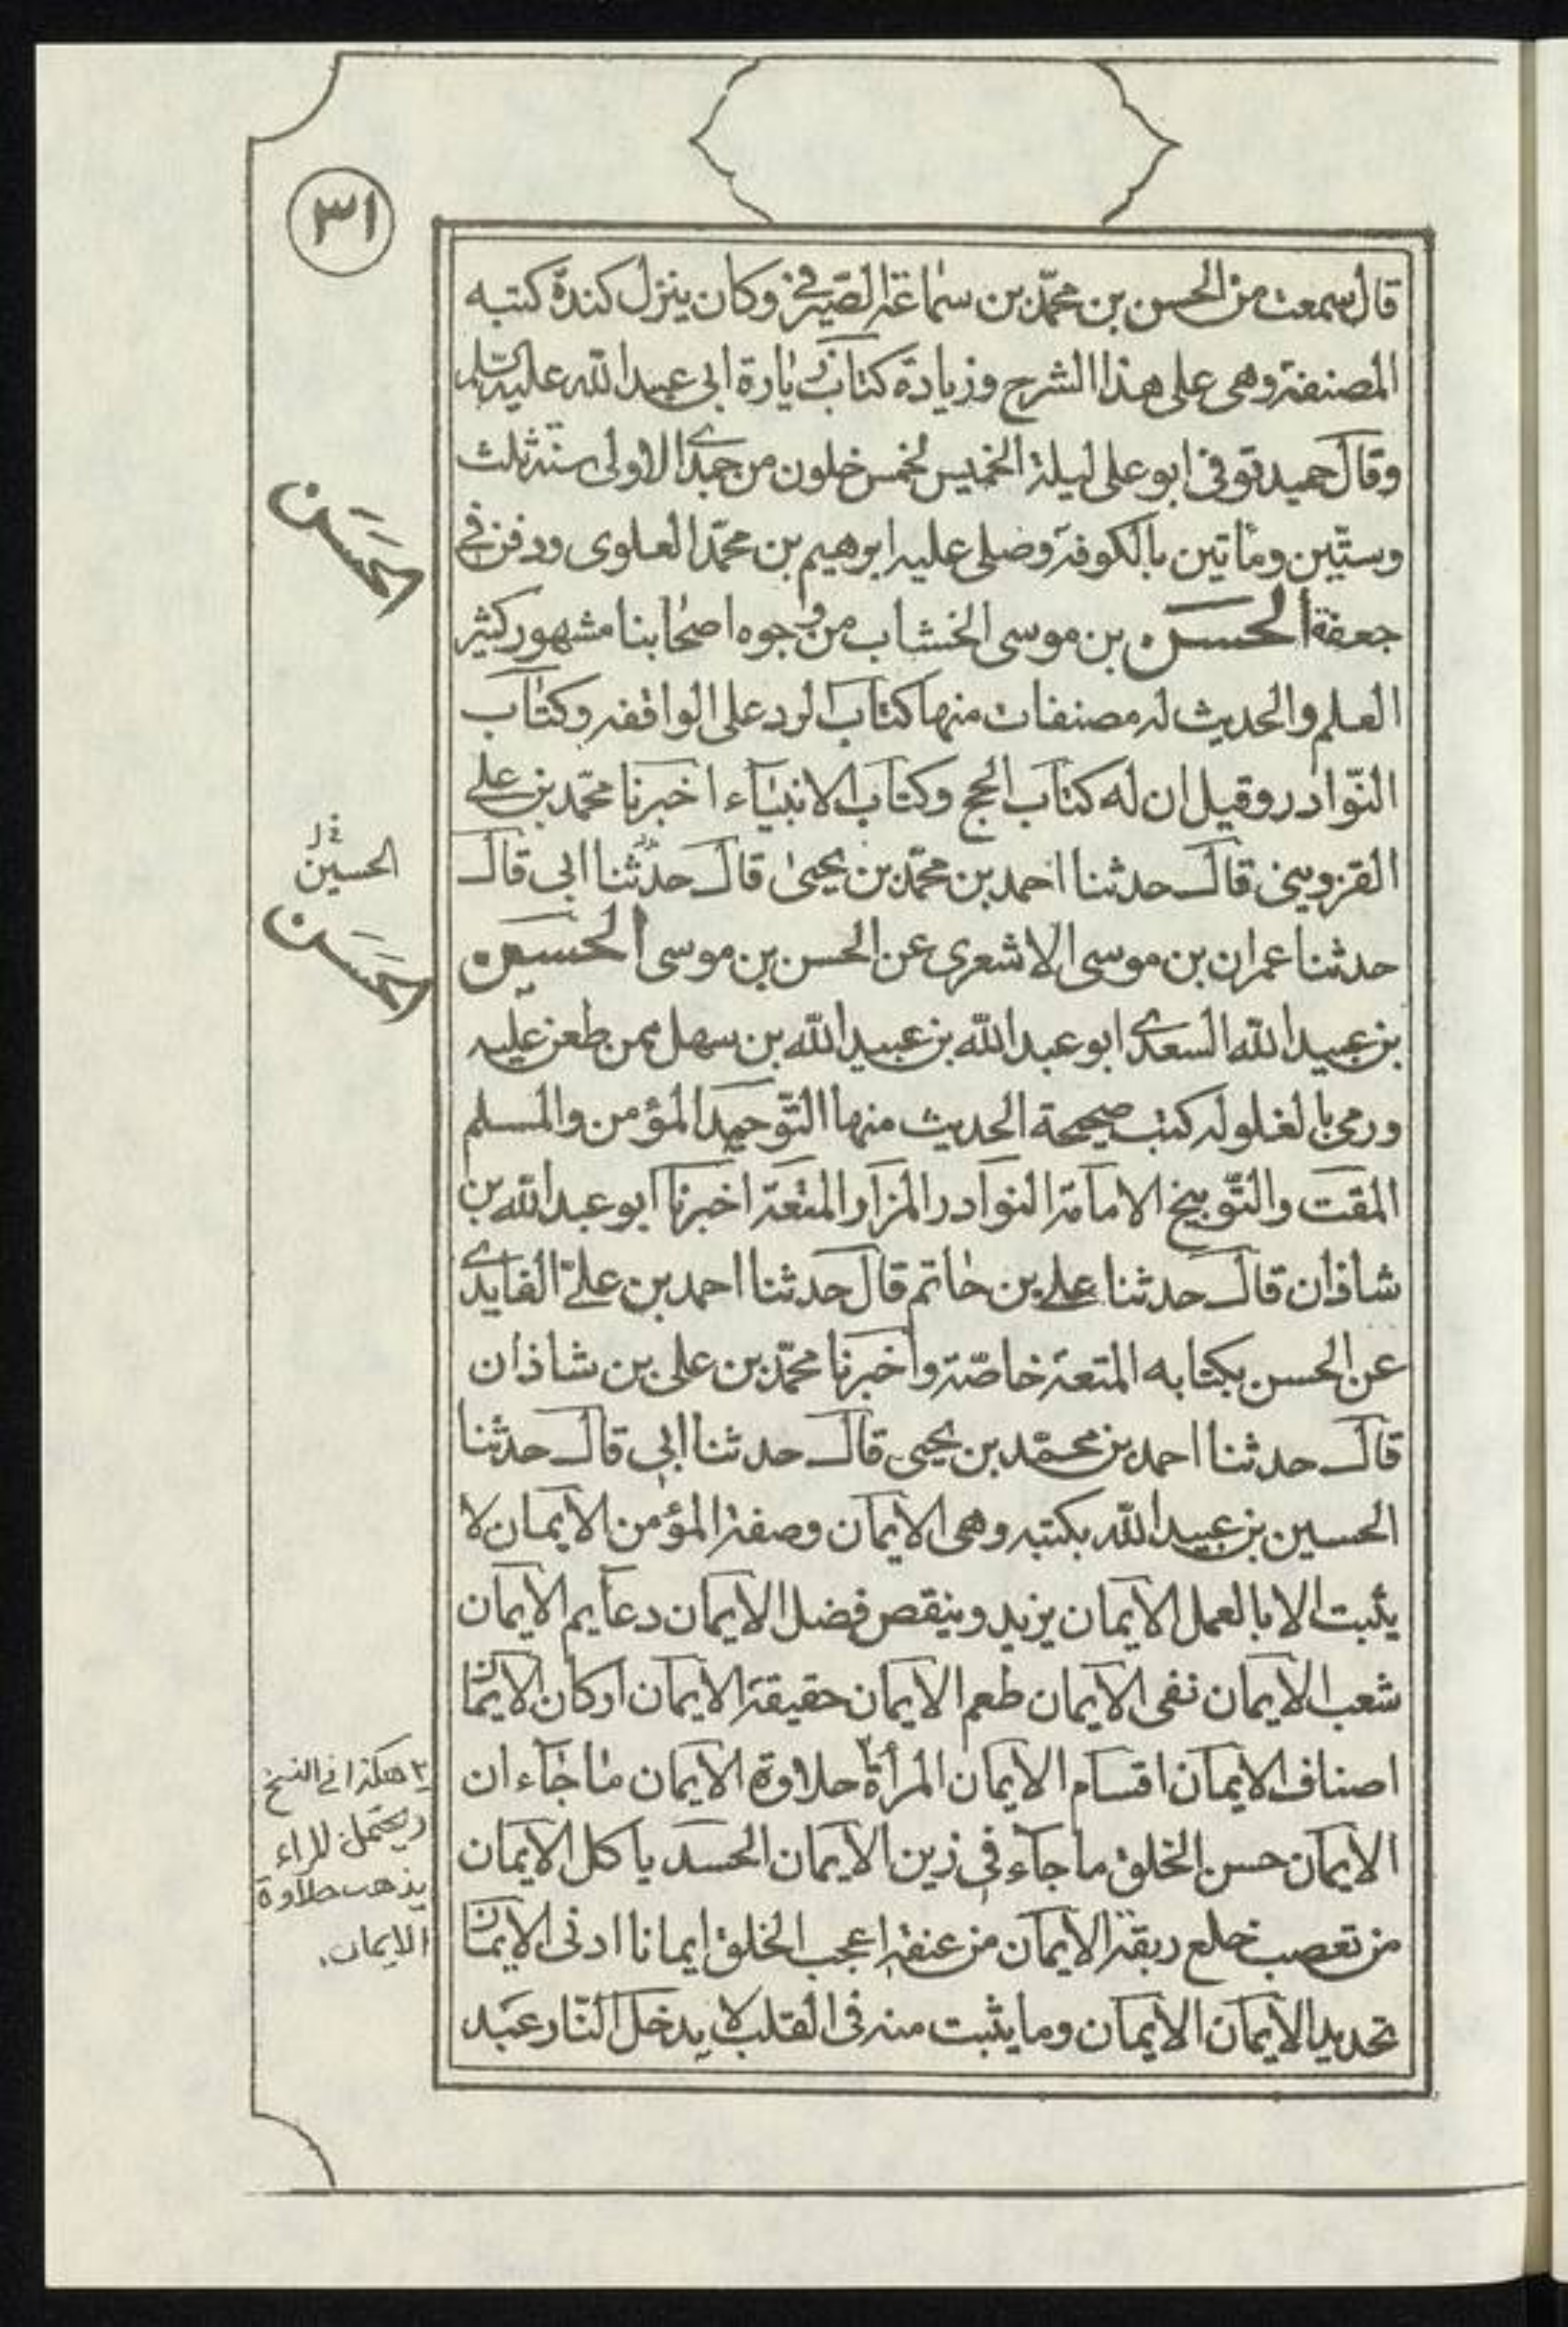 ٣١
قال سمعت من الحسن بن محمّد بن سماعة الصّيرفي وكان ينزل كندة كتبه
المصنفة وهى على هذا الشرح وزيادة كتاب زيارة ابى عبد الله عليه السّلم
وقال حميد توفى ابو على ليلة الخميس لخمس خلون من جمدى الاولى سنة ثلث
وستّين ومأتين بالكوفة وصلى عليه ابرهيم بن محمّد العلوى ودفن فى
جعفة الحسن بن موسى الخشاب من وجوه اصحابنا مشهور كثير
العلم والحديث له مصنفات منها كتاب الرد على الواقفه وكتاب
النّوادر وقيل ان له كتاب الحج وكتاب الانبيآء اخبرنا محمّد بن على
القزوينى قال حدثنا احمد بن محمّد بن يحيى قال حدّثنا ابى قال
حدثنا عمران بن موسى الاشعرى عن الحسن بن موسى الحسين
بن عبيد الله السعدى ابو عبد الله بن عبيد الله بن سهل ممن طعن عليه
ورمى بالغلو له كتب صحيحة الحديث منها التّوحيد المؤمن والمسلم
المقت والتّوبيخ الامامة النوادر المزار المتعة اخبرنا ابو عبد الله بن
شاذان قال حدثنا على بن حاتم قال حدثنا احمد بن علىّ الفايدى
عن الحسن بكتابه المتعة خاصّة واخبرنا محمّد بن على بن شاذان
قال حدثنا احمد بن محمّد بن يحيى قال حدثنا ابى قال حدثنا
الحسين بن عبيد الله بكتبه وهى الايمان وصفة المؤمن الايمان لا
يثبت الا بالعمل الايمان يزيد وينقص فضل الايمان دعآيم الايمان
شعب الايمان نفى الايمان طعم الايمان حقيقة الايمان اركان الايمان
اصناف الايمان اقسام الايمان المرأة٢ حلاوة الايمان ما جآء ان
الايمان حسن الخلق ما جآء فى زين الايمان الحسد ياكل الايمان
من تعصب خلع ربقة الايمان من عنقه اعجب الخلق ايمانا ادنى الايمان
تحديد الايمان الايمان وما يثبت منه فى القلب لا يدخل النّار عبد
الحسن
الحسين
الحسن
٢ هكذا فى النسخ
ويحتمل المراء
يذهب حلاوة
الايمان.